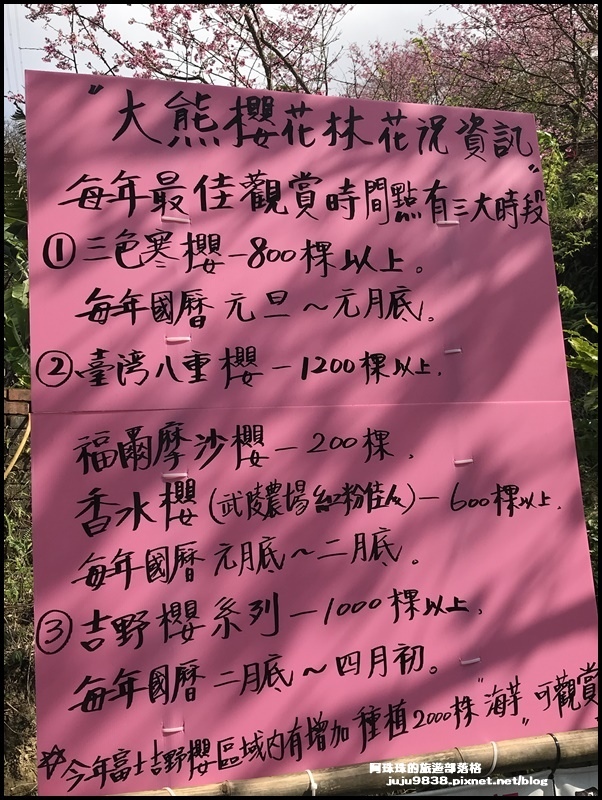 "大熊櫻花林花況資訊"
每年最佳觀賞時間點有三大時段
①三色寒櫻－800棵以上。
每年國曆元旦～元月底。
②臺湾八重櫻－1200棵以上.
福爾摩沙櫻－200棵.
香水櫻(武陵農場紅粉佳人)－600棵以上.
每年國曆元月底～二月底。
③吉野櫻系列－1000棵以上.
每年國曆二月底～四月初。
☆今年富士吉野櫻區域內有增加種植2000株"海芋"可觀賞
阿珠珠的旅遊部落格
juju9838.pixnet.net/blog